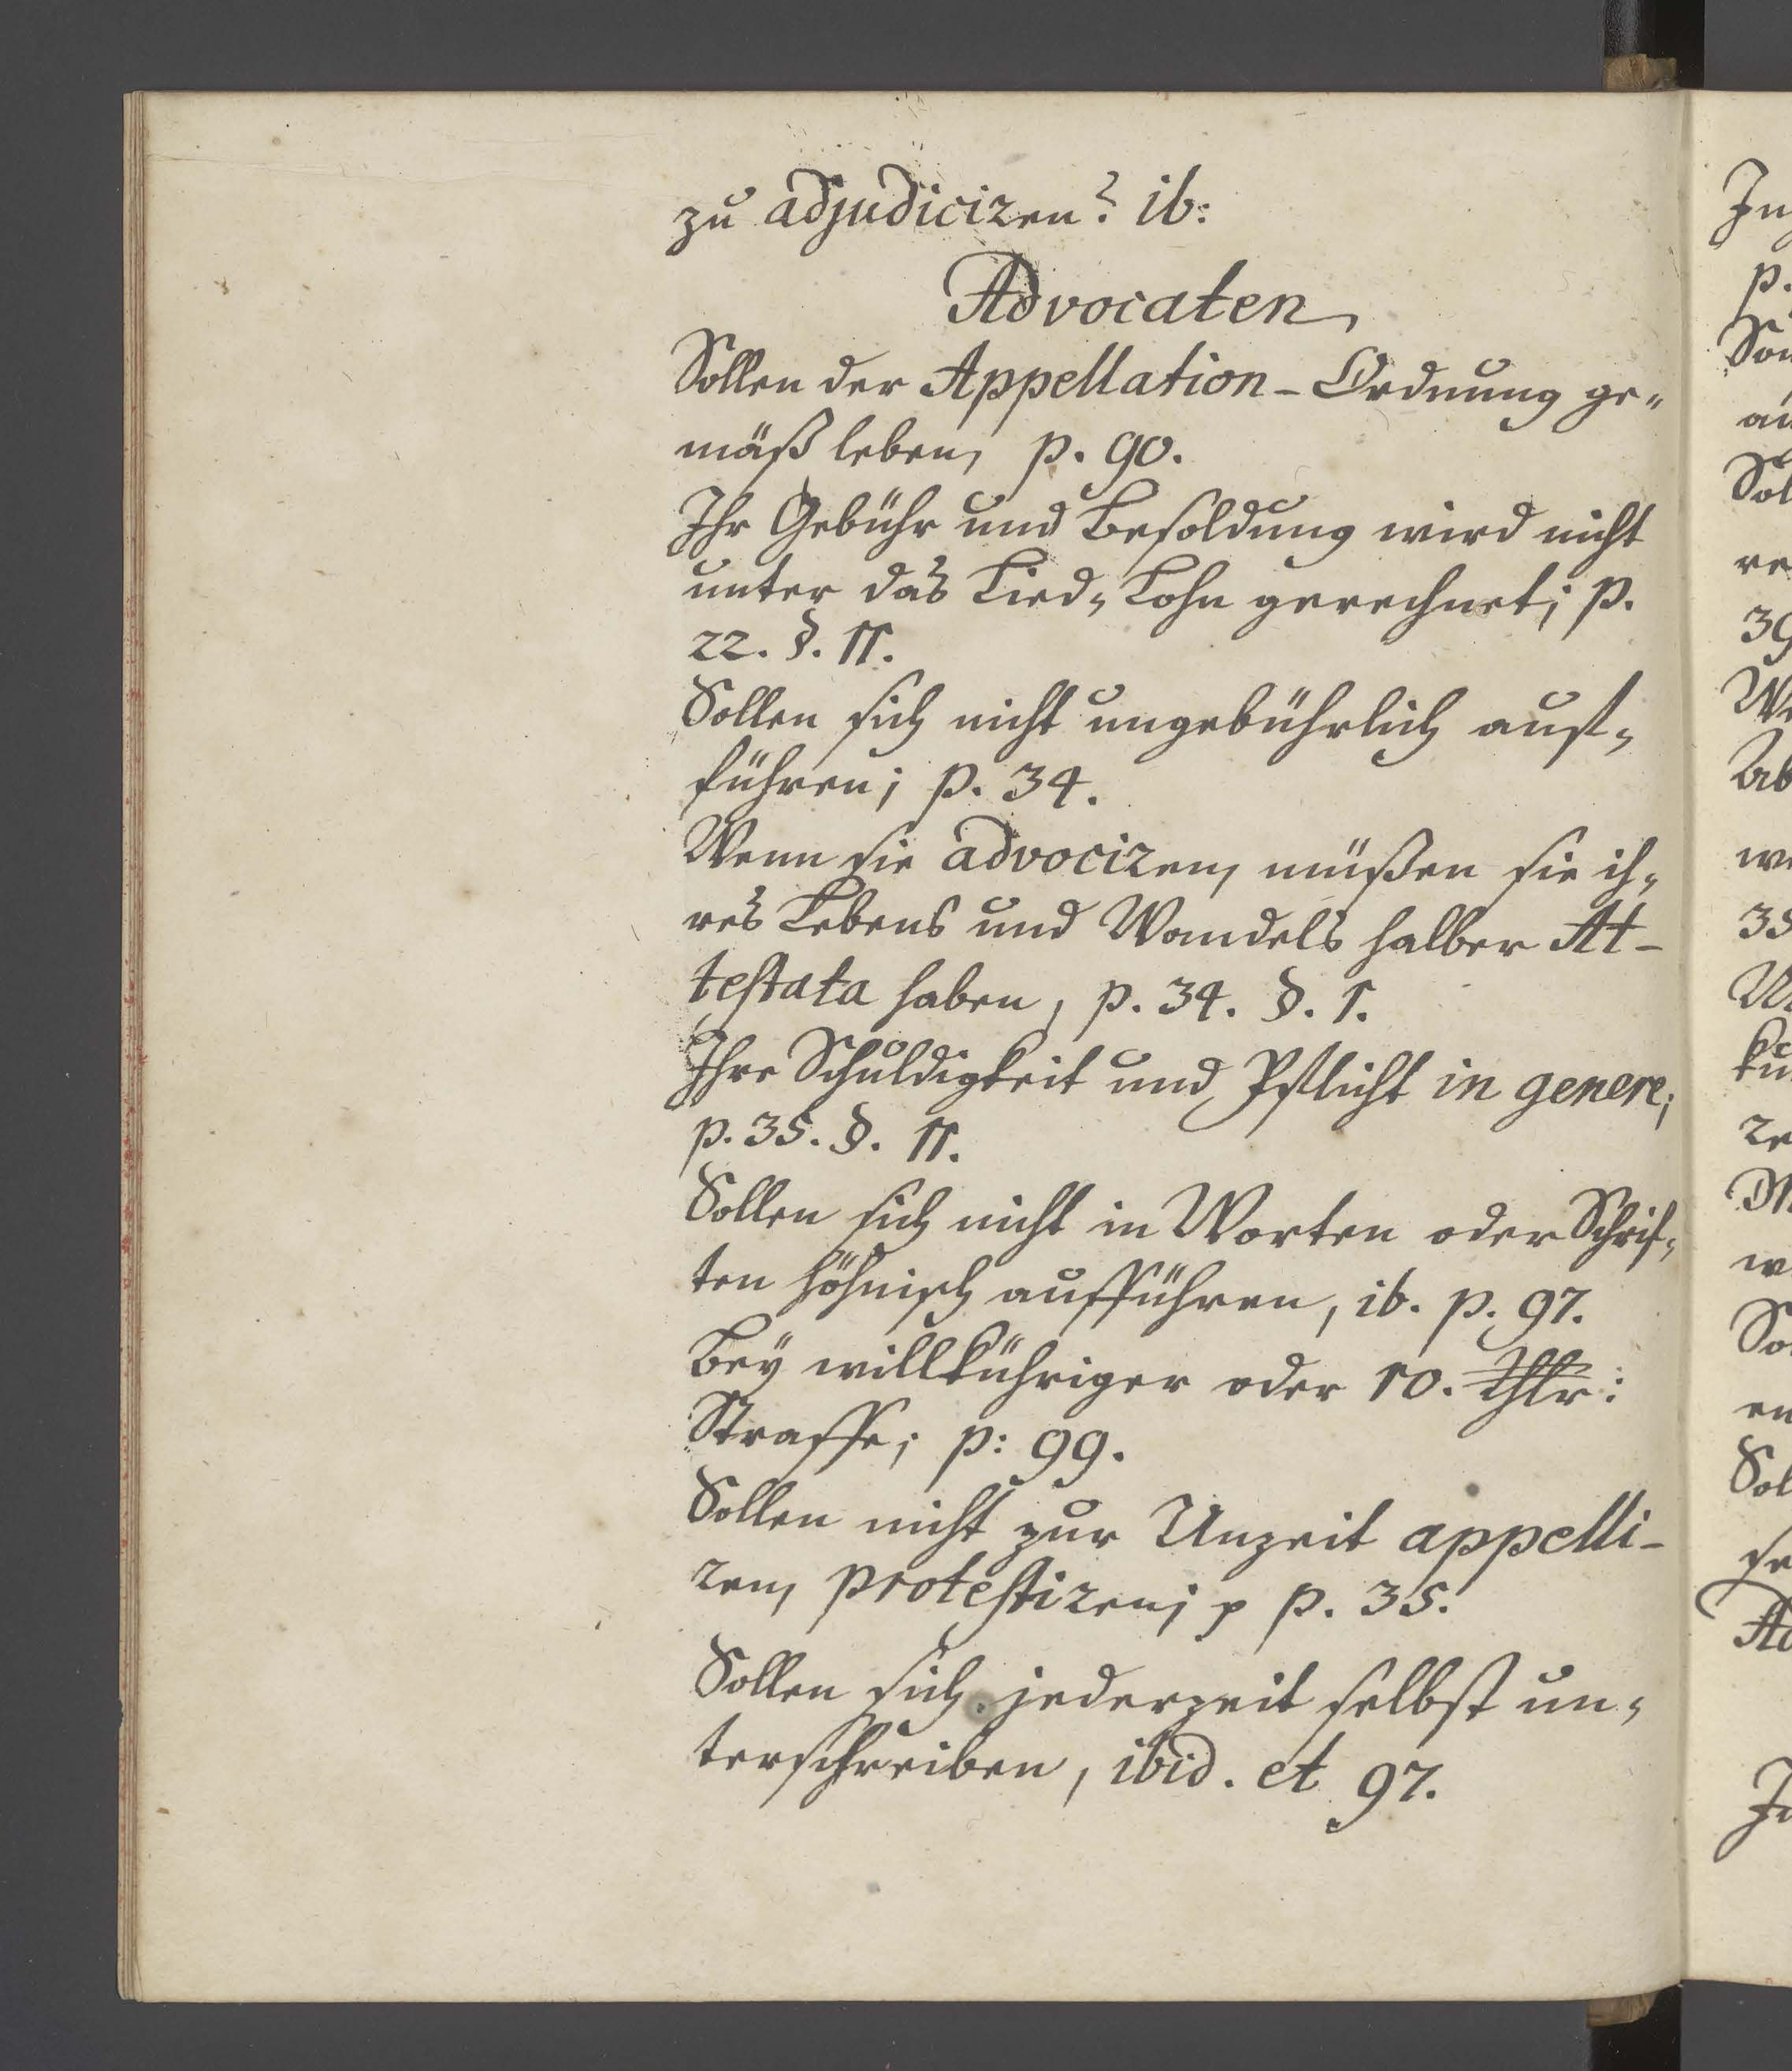 zu adjudiciren? ib:
Advocaten,
Sollen der Appellation-Ordnung ge-
mäß leben, p. 90.
Ihr Gebühr und Besoldung wird nicht
unter das Lied-Lohn gerechnet; p.
22. §. 11.
Sollen sich nicht ungebührlich auff-
führen; p. 34.
Wenn sie advociren, müßen sie ih-
res Lebens und Wandels halber At-
testata haben, p. 34. §. 1.
Ihre Schuldigkeit und Pflicht in genere;
p. 35. §. 11.
Sollen sich nicht in Worten oder Schrif-
ten höhnisch aufführen, ib. p. 97.
Bey willkühriger oder 10. Thlr:
Straffe; p: 99.
Sollen nicht zur Unzeit appelli-
ren, protestiren; p. 35.
Sollen sich jederzeit selbst un-
terschreiben, ibid. et 97.